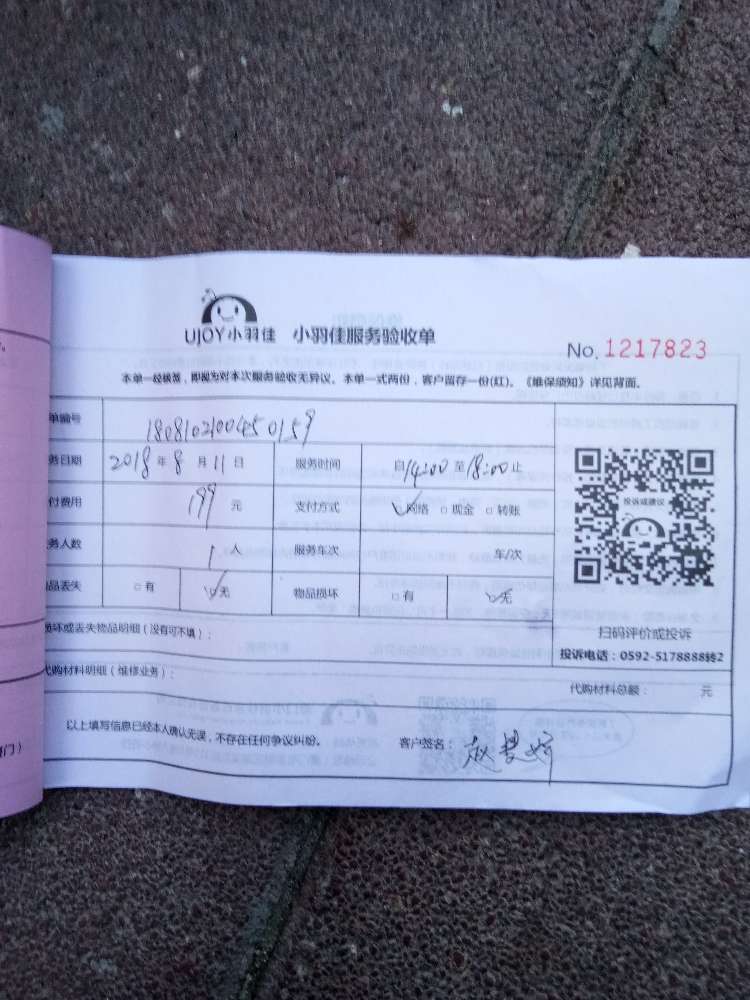 UJOY小羽佳 小羽佳服务验收单
No. 1217823
本单一经核签，即视为对本次服务验收无异议。本单一式两份，客户留存一份(红)。《维保须知》详见背面。
单编号 180810210045 0159
务日期 2018年8月11日 服务时间 自14:00至18:00止
付费用 199元 支付方式 ☑网络 □现金 □转账
务人数 1人 服务车次 车/次
品丢失 □有 ☑无 物品损坏 □有 ☑无
投诉或建议
扫码评价或投诉
投诉电话：0592-5178888转2
损坏或丢失物品明细（没有可不填）：
代购材料明细（维修业务）： 代购材料总额： 元
以上填写信息已经本人确认无误，不存在任何争议纠纷。 客户签名：
门）